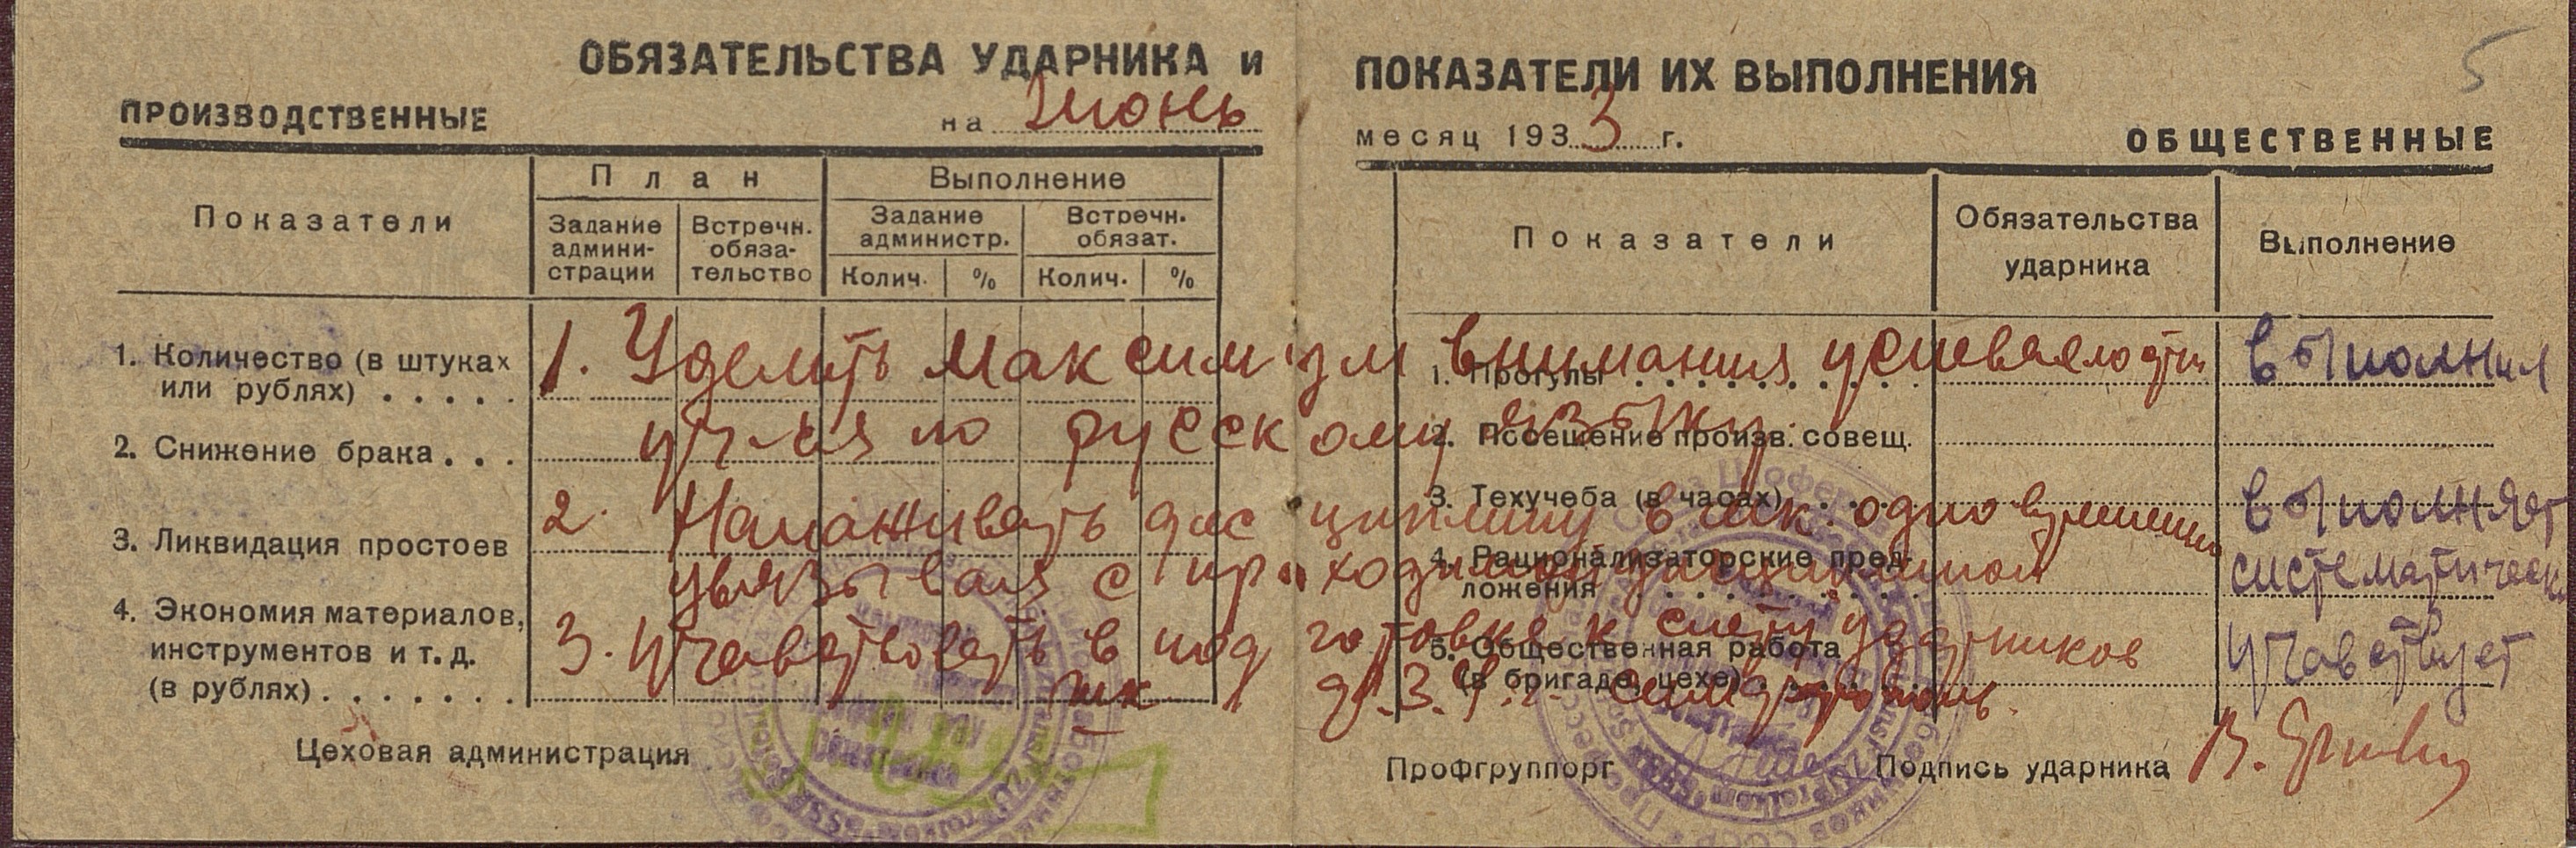 ОБЯЗАТЕЛЬСТВА УДАРНИКА и ПОКАЗАТЕЛИ ИХ ВЫПОЛНЕНИЯ
5
ПРОИЗВОДСТВЕННЫЕ
на Июнь месяц 1933 г.
ОБЩЕСТВЕННЫЕ
Показатели
План
Выполнение
Задание админи-
страции
Встречн. обяза-
тельство
Задание администр.
Встречн. обязат.
Колич. % Колич. %
Показатели
Обязательства ударника
Выполнение
1. Количество (в штуках
или рублях) . . . . .
2. Снижение брака . . .
3. Ликвидация простоев
4. Экономия материалов,
инструментов и т. д.
(в рублях) . . . . . . .
1. Прогулы
2. Посещение произв. совещ.
3. Техучеба (в часах)
4. Рационализаторские пред-
ложения
5. Общественная работа
(в бригаде, цехе)
1. Уделить максимум внимания успеваемости выполнил
уч-ся по русскому языку
2. Налаживать дисциплину в шк. одновременно выполняет
увязывая с систематическ
3. Участвовать в подготовке к слету ударников участвует
шк.
Цеховая администрация
Профгруппорг
Подпись ударника В.